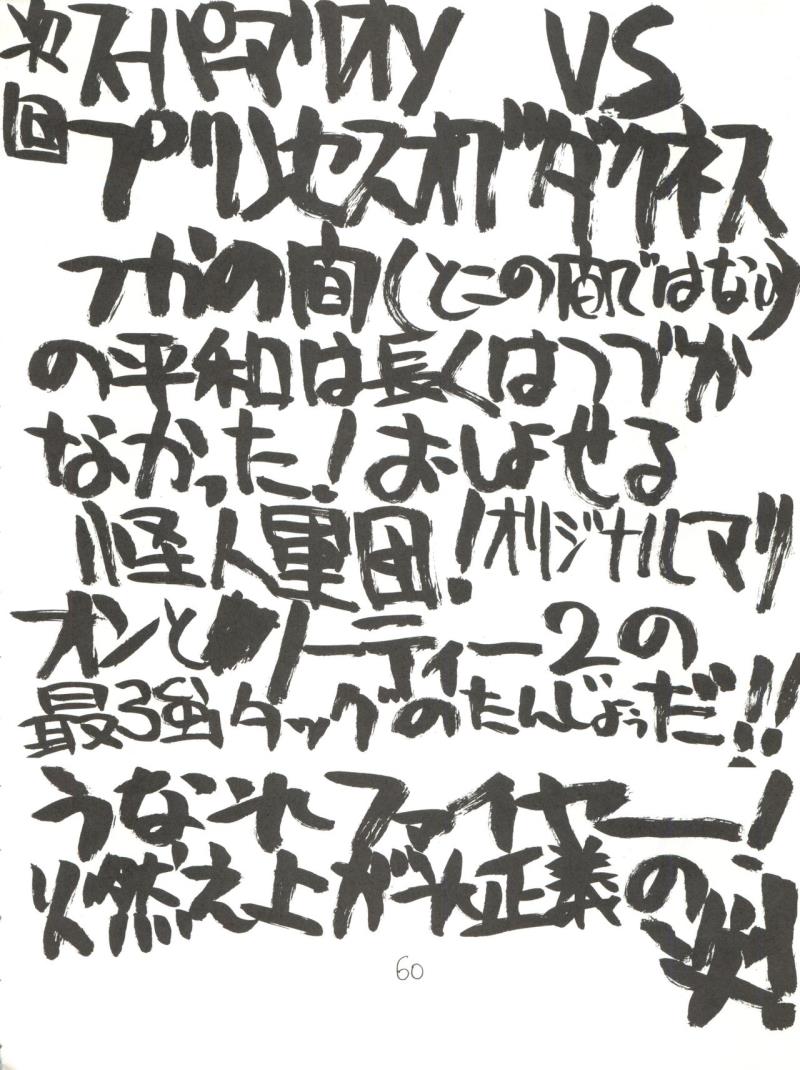 次回 スーパーマリオン VS
プリンセスオブダークネス
つかの間(とこの間ではない)
の平和は長くはつづか
なかった!おしよせる
怪人軍団!オリジナルマリ
オンとリーティー2の
最強タッグのたんじょうだ!!
うなれファイヤー!
燃え上がれ正義の
炎!
60